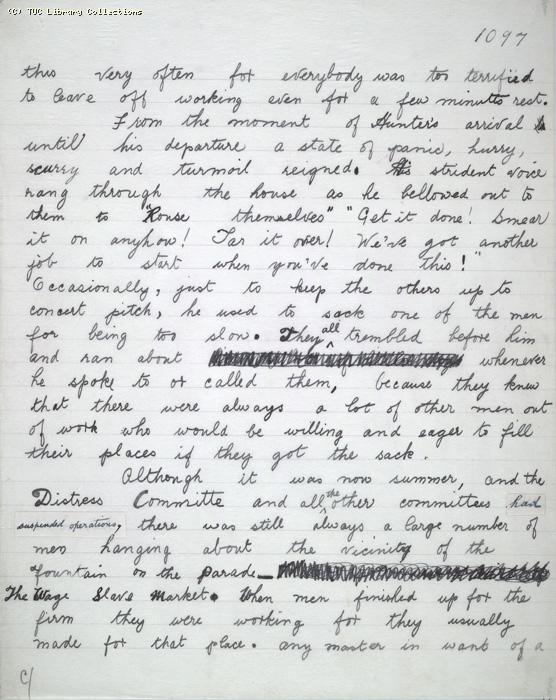 (C) TUC Library Collections
1097
this very often for everybody was too terrified
to leave off working even for a few minutes rest.
From the moment of Hunter's arrival
until his departure a state of panic, hurry,
scurry and turmoil reigned. His strident voice
rang through the house as he bellowed out to
them to "Rouse themselves" "Get it done! Smear
it on anyhow! Tar it over! We've got another
job to start when you've done this!"
Occasionally, just to keep the others up to
concert pitch, he used to sack one of the men
for being too slow. They all trembled before him
and ran about whenever
he spoke to or called them, because they knew
that there were always a lot of other men out
of work who would be willing and eager to fill
their places if they got the sack.
Although it was now summer, and the
Distress Committe and all the other committees had
suspended operations, there was still always a large number of
men hanging about the vicinity of the
Fountain on the Parade_
The Wage Slave Market. When men finished up for the
firm they were working for they usually
made for that place. Any master in want of a
C/